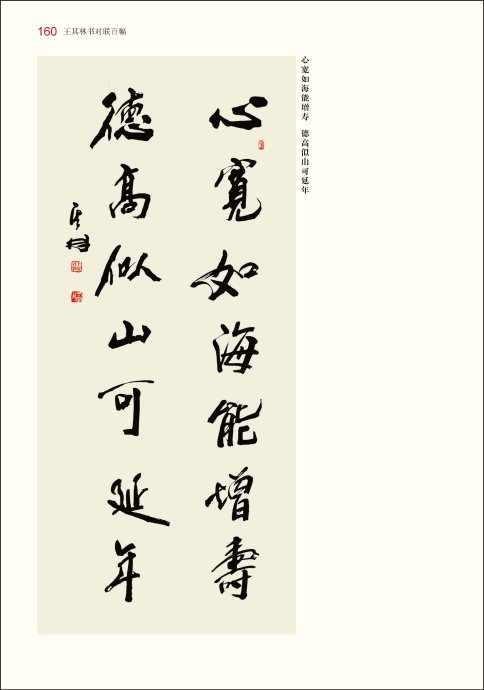 160 王其林书对联百幅
心宽如海能增寿 德高似山可延年
心寬如海能增壽
德高似山可延年
其林